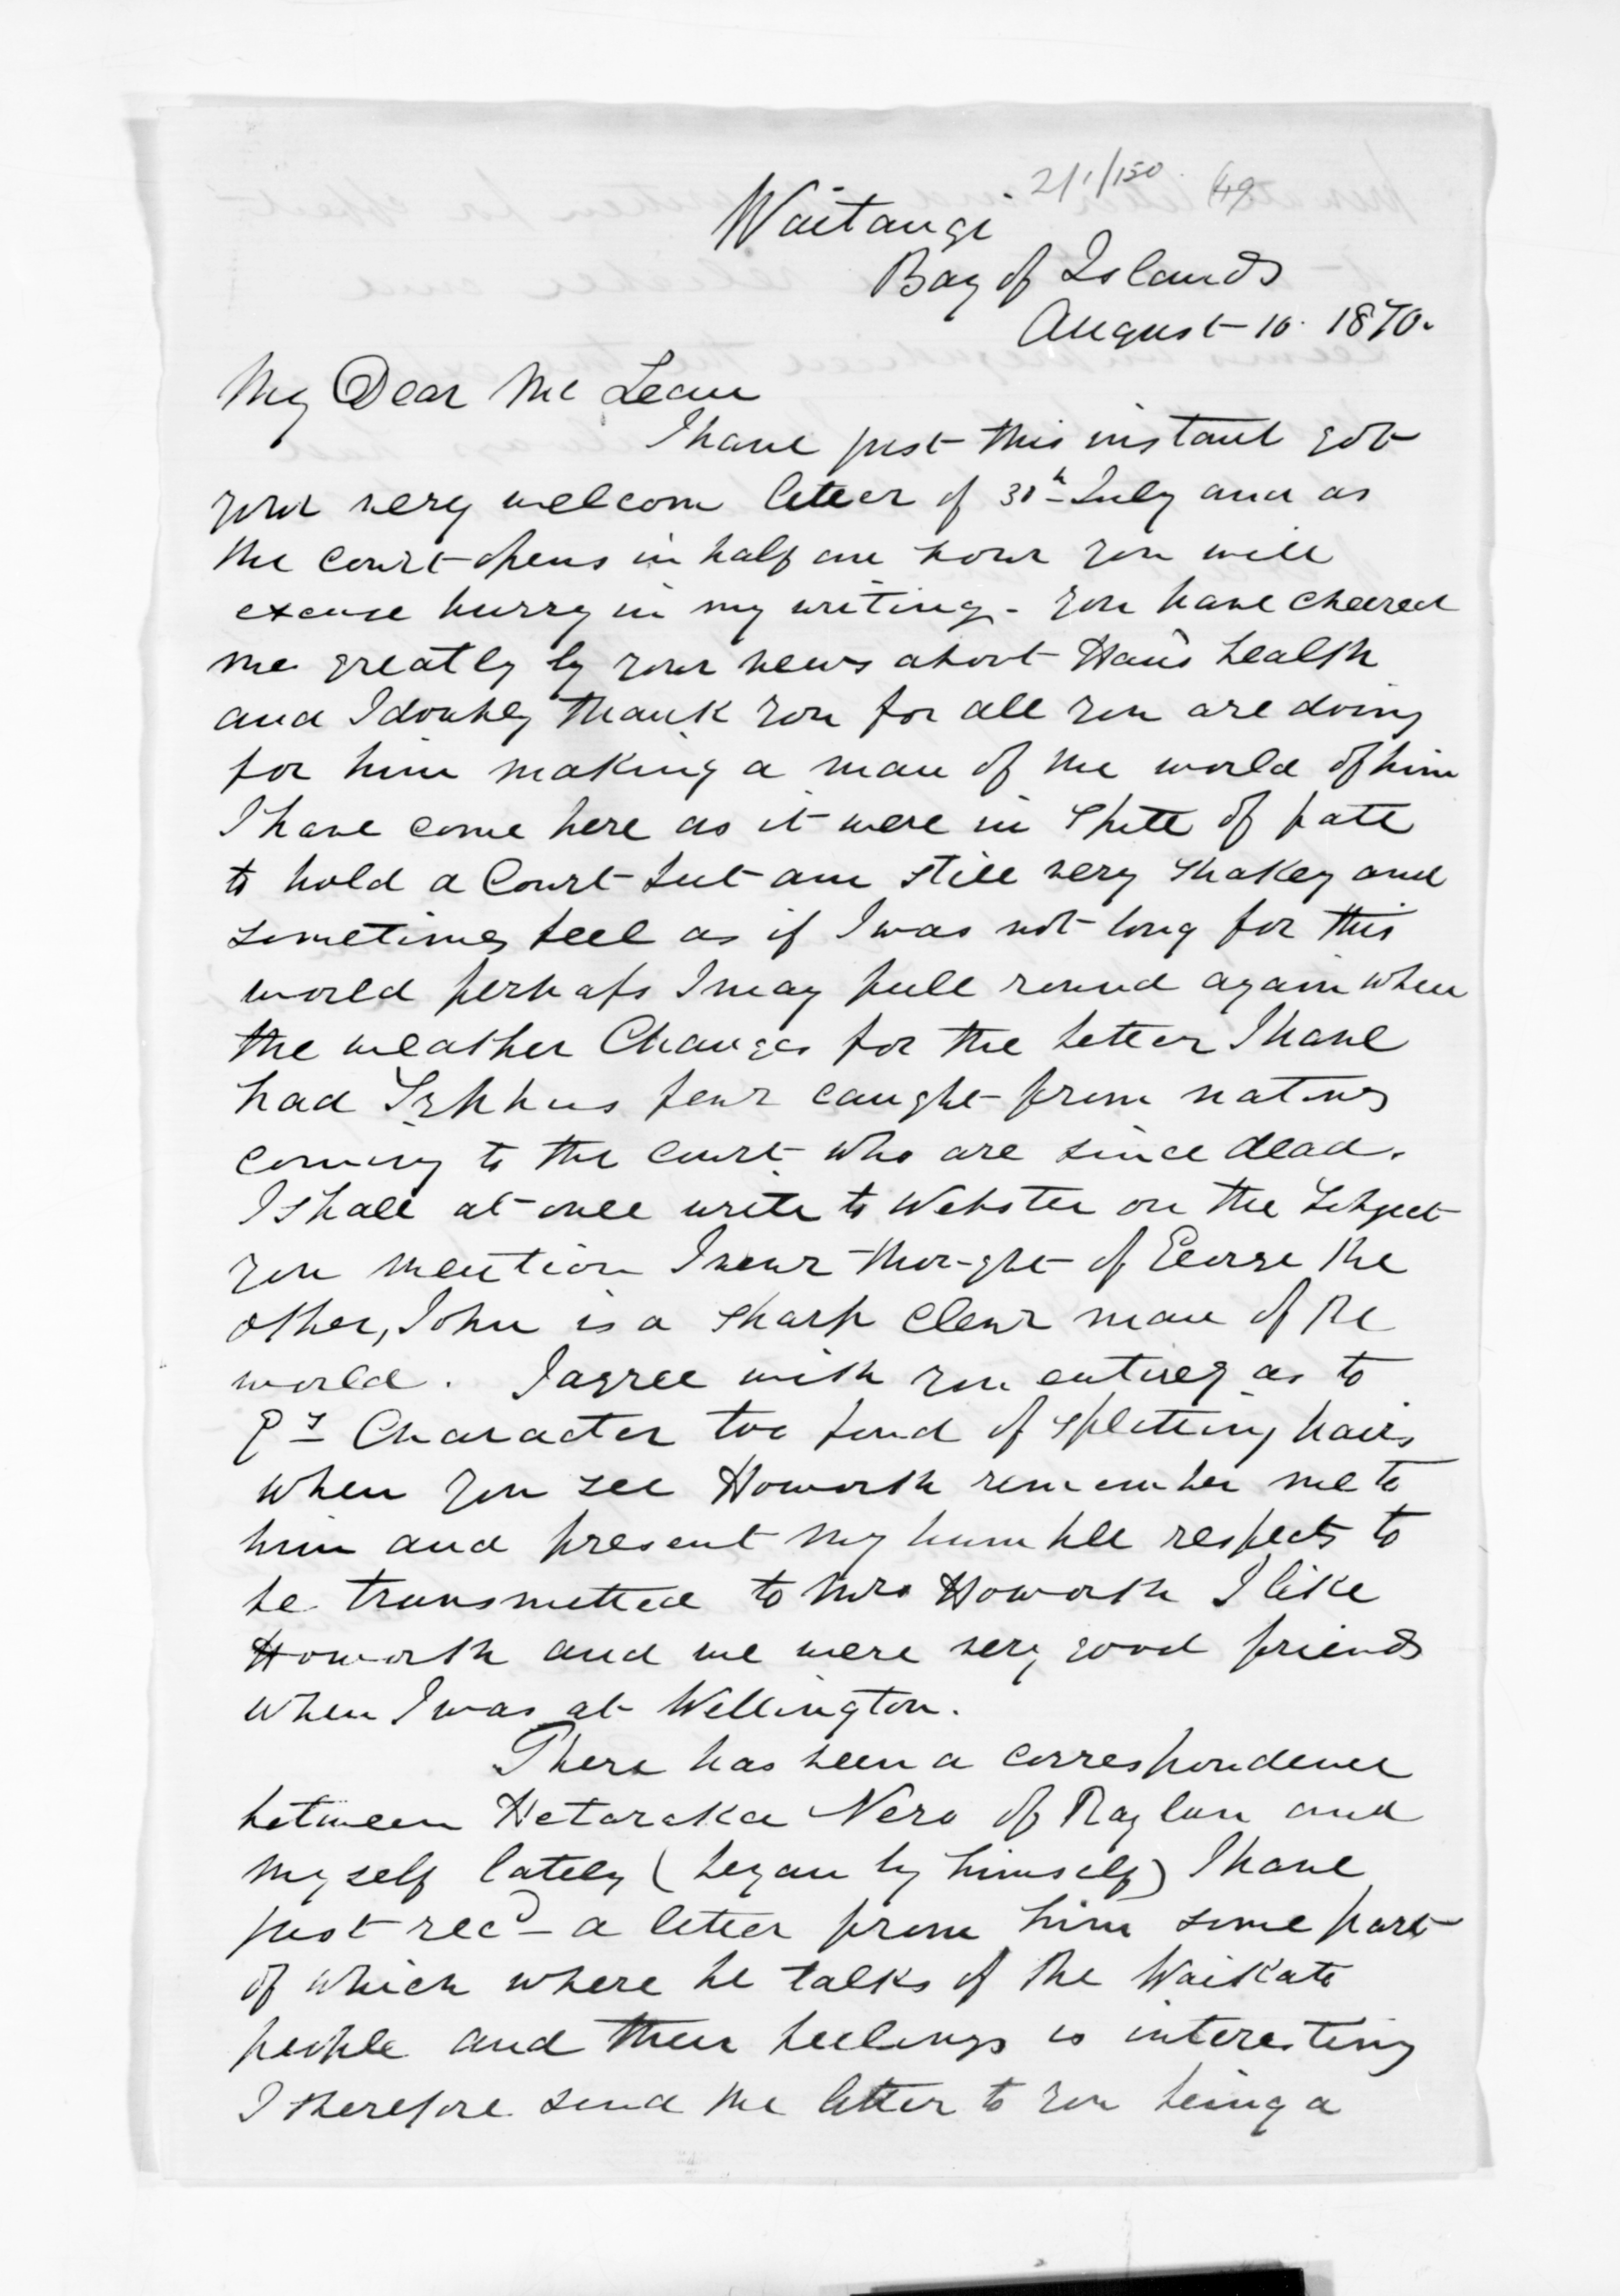 2/1/150. 49
Waitangi
Bay of Islands
August 10. 1870.
My Dear Mc Lean
I have just this instant got
your very welcom letter of 30th July and as
the court opens in half an hour you will
excuse hurry in my writing. You have cheered
me greatly by your news about Hau's health
and I doubly thank you for all you are doing
for him making a man of the world of him
I have come here as it were in spite of fate
to hold a Court but am still very shakey and
sometimes feel as if I was not long for this
world perhaps I may pull round again when
the weather Changes for the better I have
had Typhus fever caught from natives
coming to the court who are since dead.
I shall at once write to Webster on the subject
you mention I never thought of George the
other, John is a sharp clever man of the
world. I agree with you entirely as to
Character too fond of splitting hairs
when you see Howorth remember me to
him and present my humble respects to
be transmitted to Mrs Howorth I like
Howorth and we were very good friends
when I was at Wellington.
There has been a correspondence
between Hetaraka Nero of Raglan and
myself lately (began by himself) I have
just recd a letter from him some part
of which where he talks of the Waikato
people and their feelings is interesting
I therefore send the letter to you being a